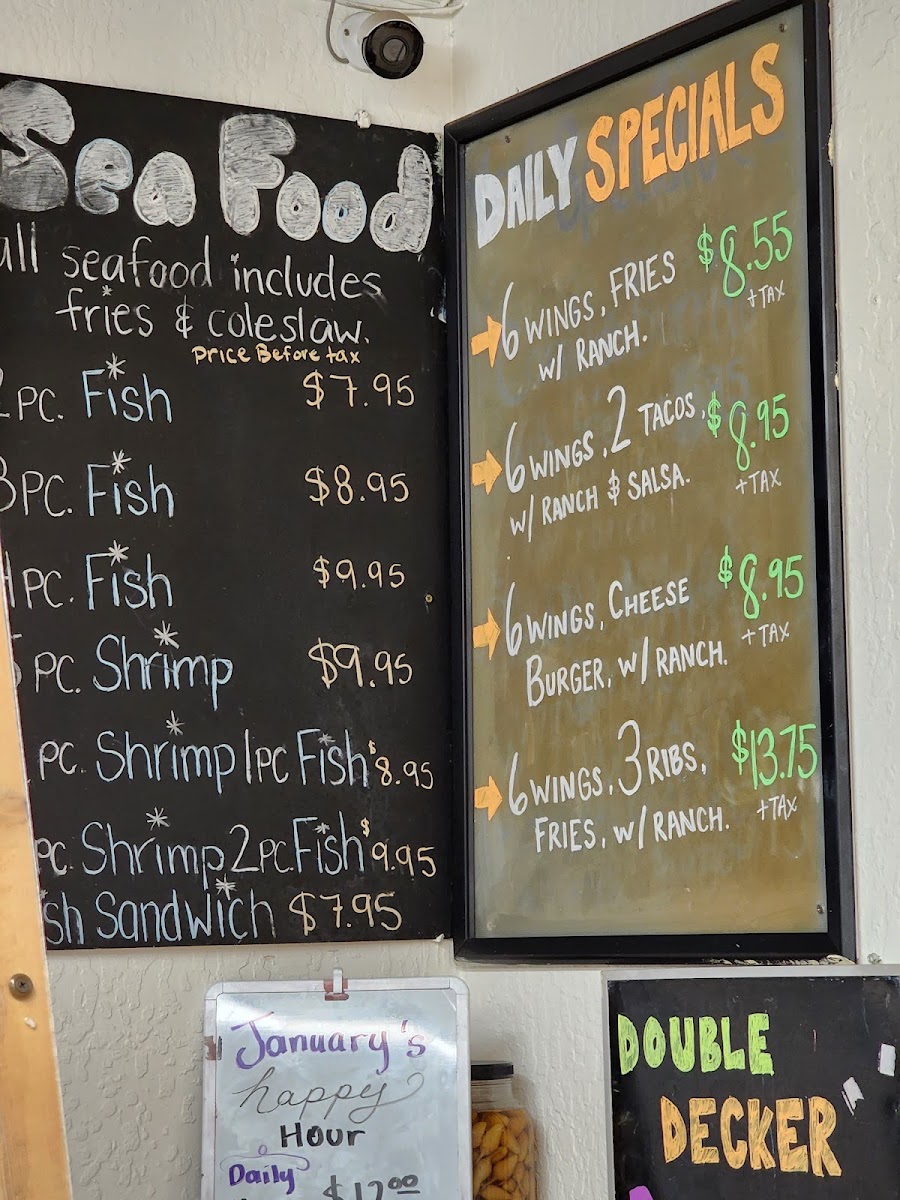 Sea Food
all seafood includes
fries & coleslaw.
price Before tax
2 PC. Fish $7.95
3 PC. Fish $8.95
PC. Fish $9.95
PC. Shrimp $9.95
PC. Shrimp 1 PC Fish $8.95
PC. Shrimp 2 PC. Fish $9.95
sh Sandwich $7.95
DAILY SPECIALS
6 WINGS, FRIES $8.55
W/ RANCH. + TAX
6 WINGS, 2 TACOS, $8.95
W/ RANCH & SALSA. + TAX
6 WINGS, CHEESE $8.95
BURGER, W/ RANCH. + TAX
6 WINGS, 3 RIBS, $13.75
FRIES, W/ RANCH. + TAX
January's
happy
Hour
Daily
DOUBLE
DECKER